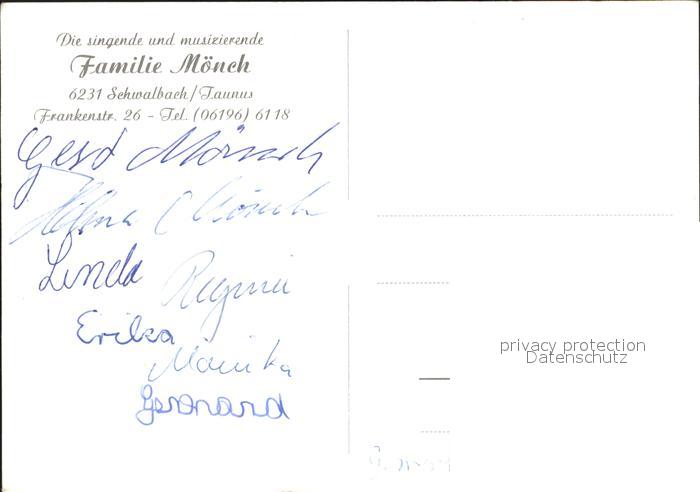 Die singende und musizierende
Familie Mönch
6231 Schwalbach/Taunus
Frankenstr. 26 - Tel. (06196) 6118
Gerd Mönch
Helma Mönch
Linda
Regina
Erika
Monika
Gernard
privacy protection
Datenschutz